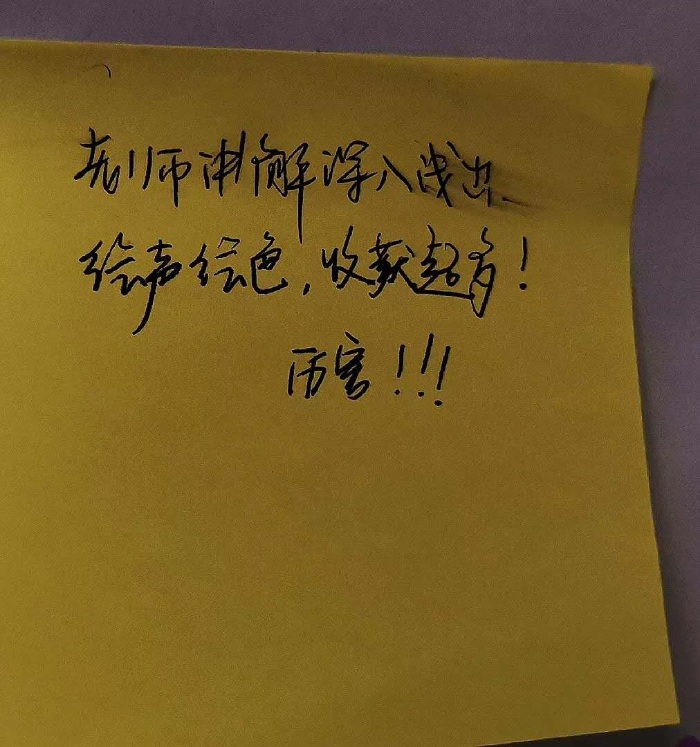 老师讲解深入浅出、
绘声绘色,收获超多!
厉害!!!